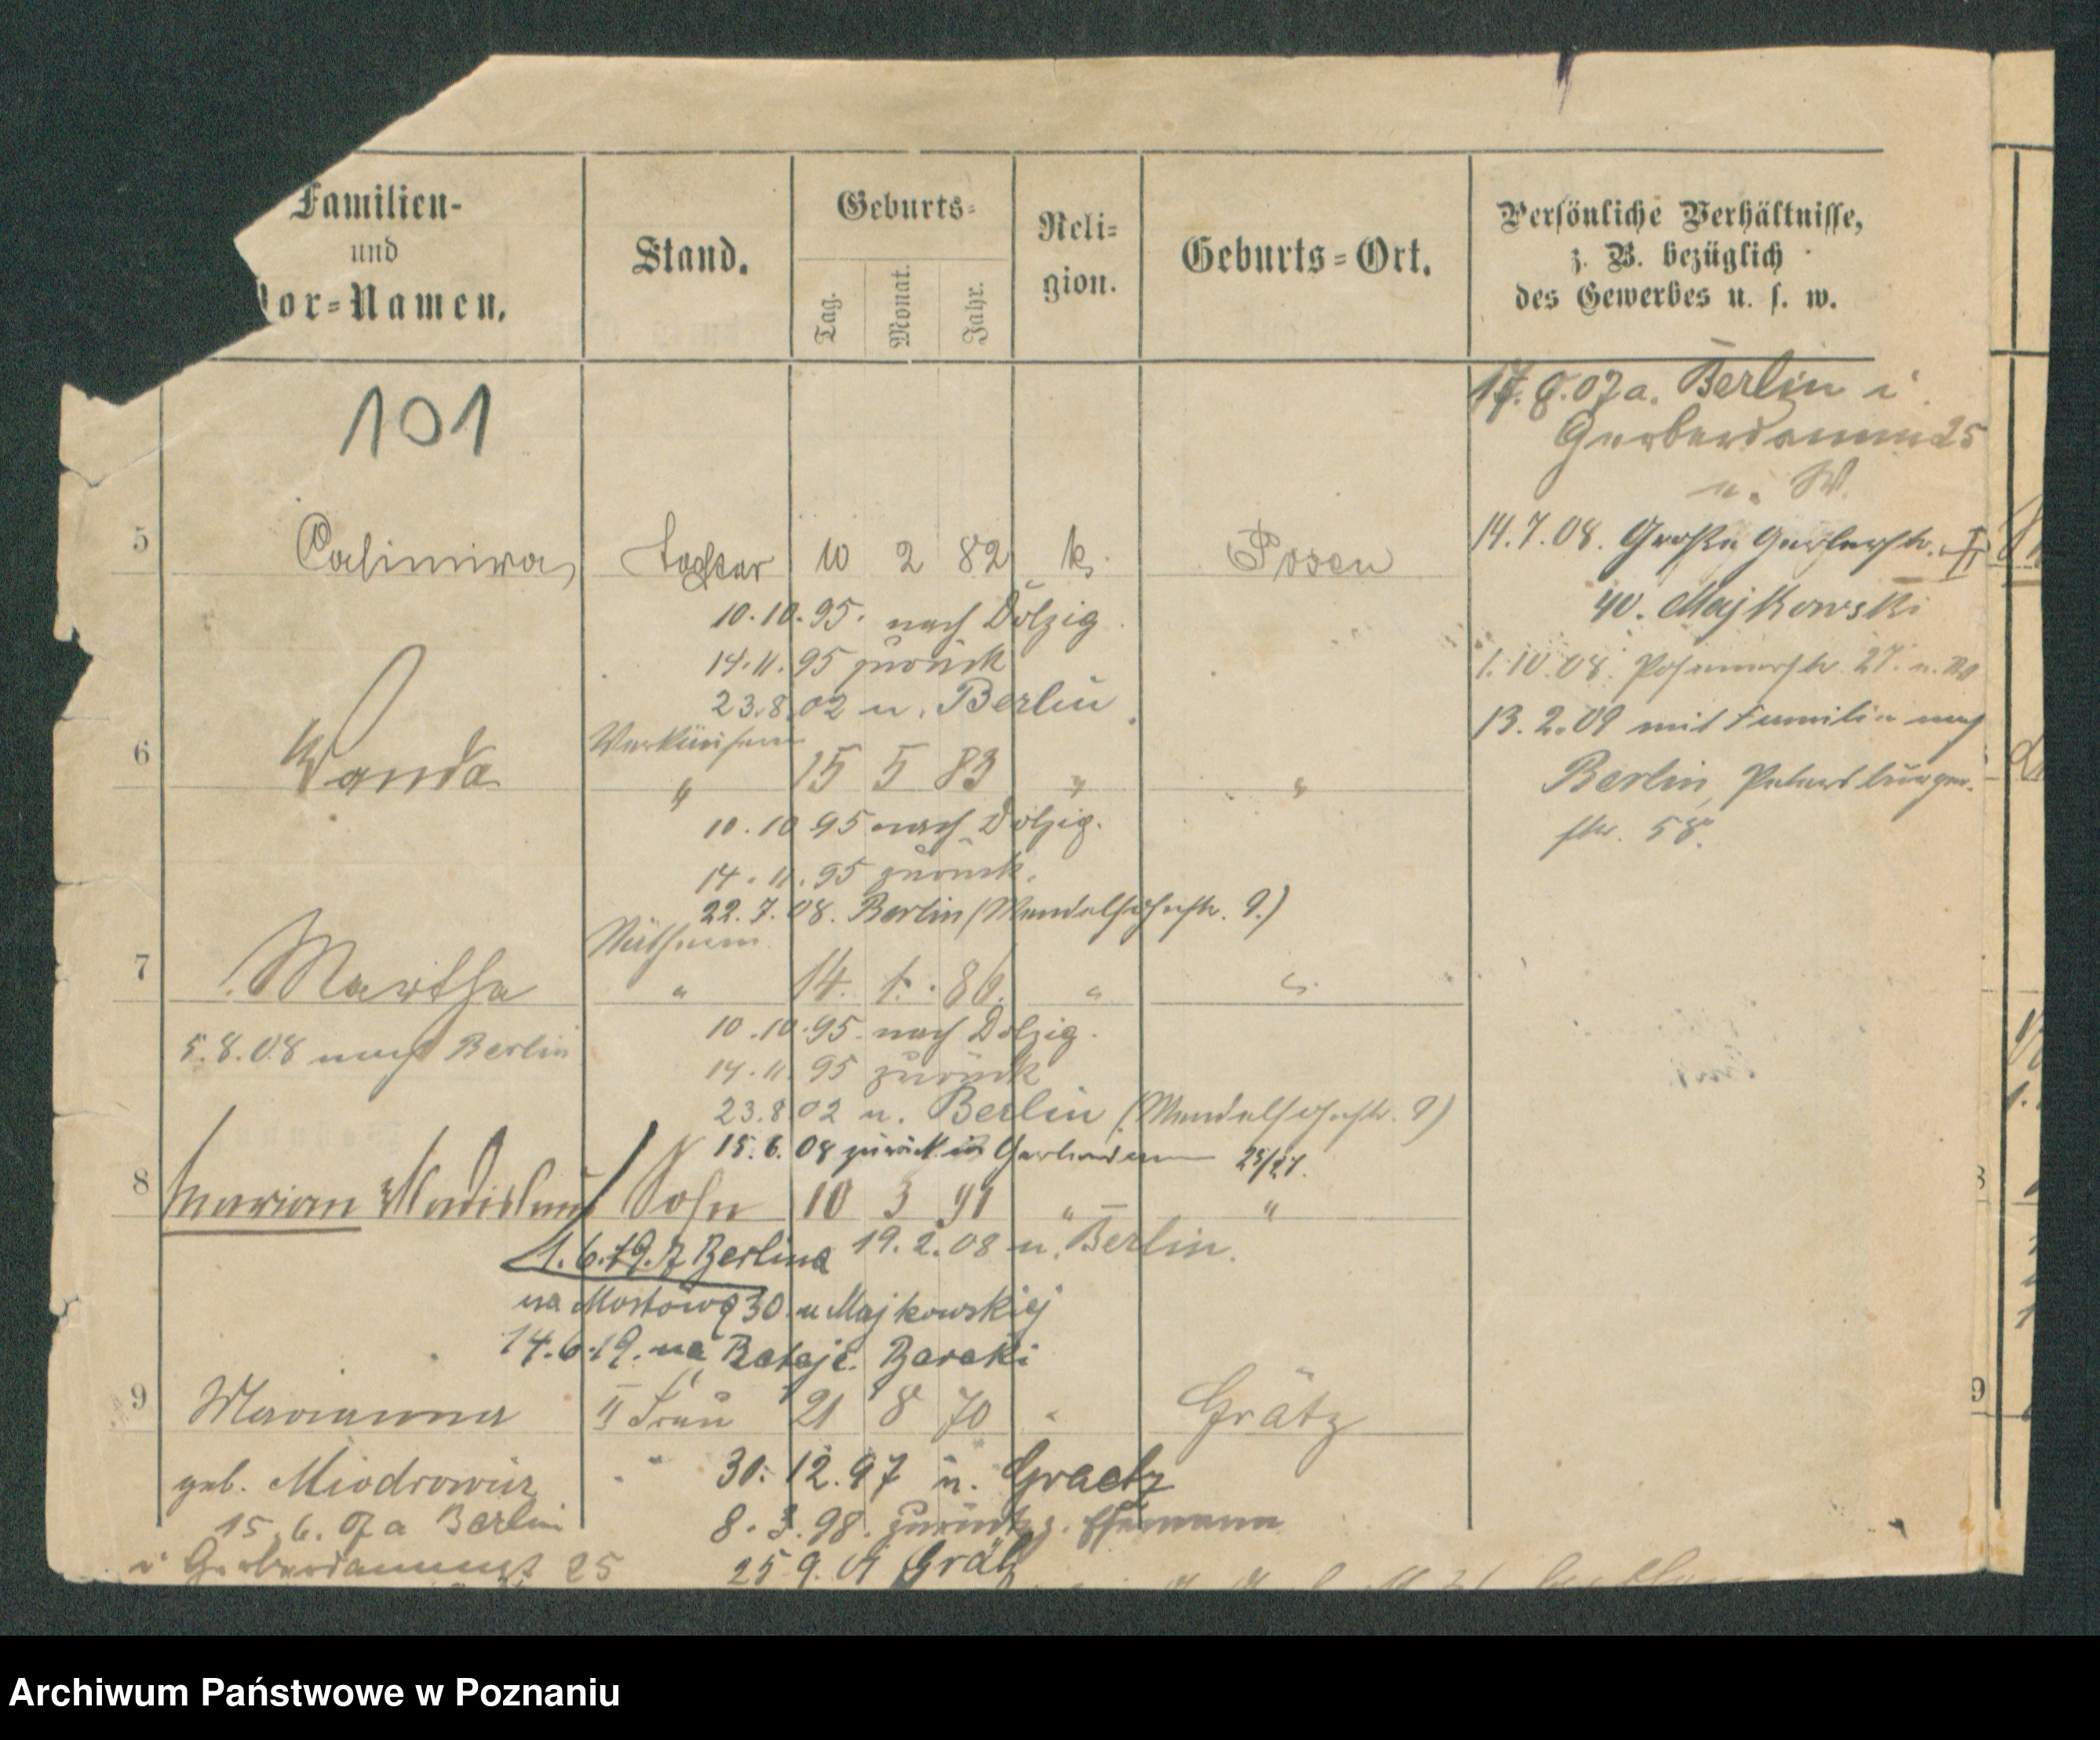 Familien-
und
or-Namen.
Stand.
Geburts-
Tag.
Monat.
Jahr.
Reli-
gion.
Geburts-Ort.
Persönliche Verhältnisse,
z. B. bezüglich
des Gewerbes u. s. w.
101
5 Casimira Tochter 10 2 82 k. Posen
10.10.95. nach Dolzig
14.11.95 zurück
23.8.02 n. Berlin
Verkäuferin
6 Wanda " 15 5 83 " "
10.10 95 nach Dolzig.
14.11.95 zurück.
22.7.08. Berlin (Mendelsohnstr. 9.)
Nätherin
7 Martha " 14. 1. 86. " "
5.8.08 nach Berlin
10.10.95. nach Dolzig.
14.11.95 zurück
23.8.02 n. Berlin (Mendelsohnstr. 9)
15.6.08 zurück Gerberdamm 25/27.
8 Marian Wladislaus Sohn 10 3 91 " "
1.6.19. z Berlina 19.2.08 n. Berlin.
na Mostową 30 u Majkowskiej
14.6.19. na Rataje. Baraki
9 Marianna II Frau 21 8 70 " Grätz
geb. Miodrowicz
30.12.97 n. Graetz
15.6.07 a Berlin
8.3.98. zurück z. Ehemann
i Gerberdamm 25
25 9. 01 Grätz
17.8.07 a. Berlin i
Gerberdamm 25
n. W.
14.7.08. Große Gerberstr.
40. Majkowski
1.10.08. Posenerstr. 27. n. W
13.2.09 mit Familie nach
Berlin, Petersburger-
str. 58.
8
9
Archiwum Państwowe w Poznaniu